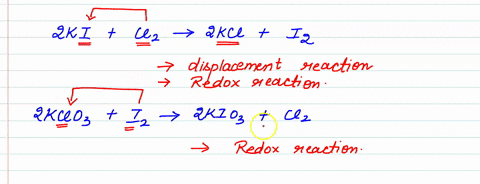 2KI + Cl₂ → 2KCl + I₂
→ displacement reaction
→ Redox reaction.
2KClO₃ + I₂ → 2KIO₃ + Cl₂
→ Redox reaction.